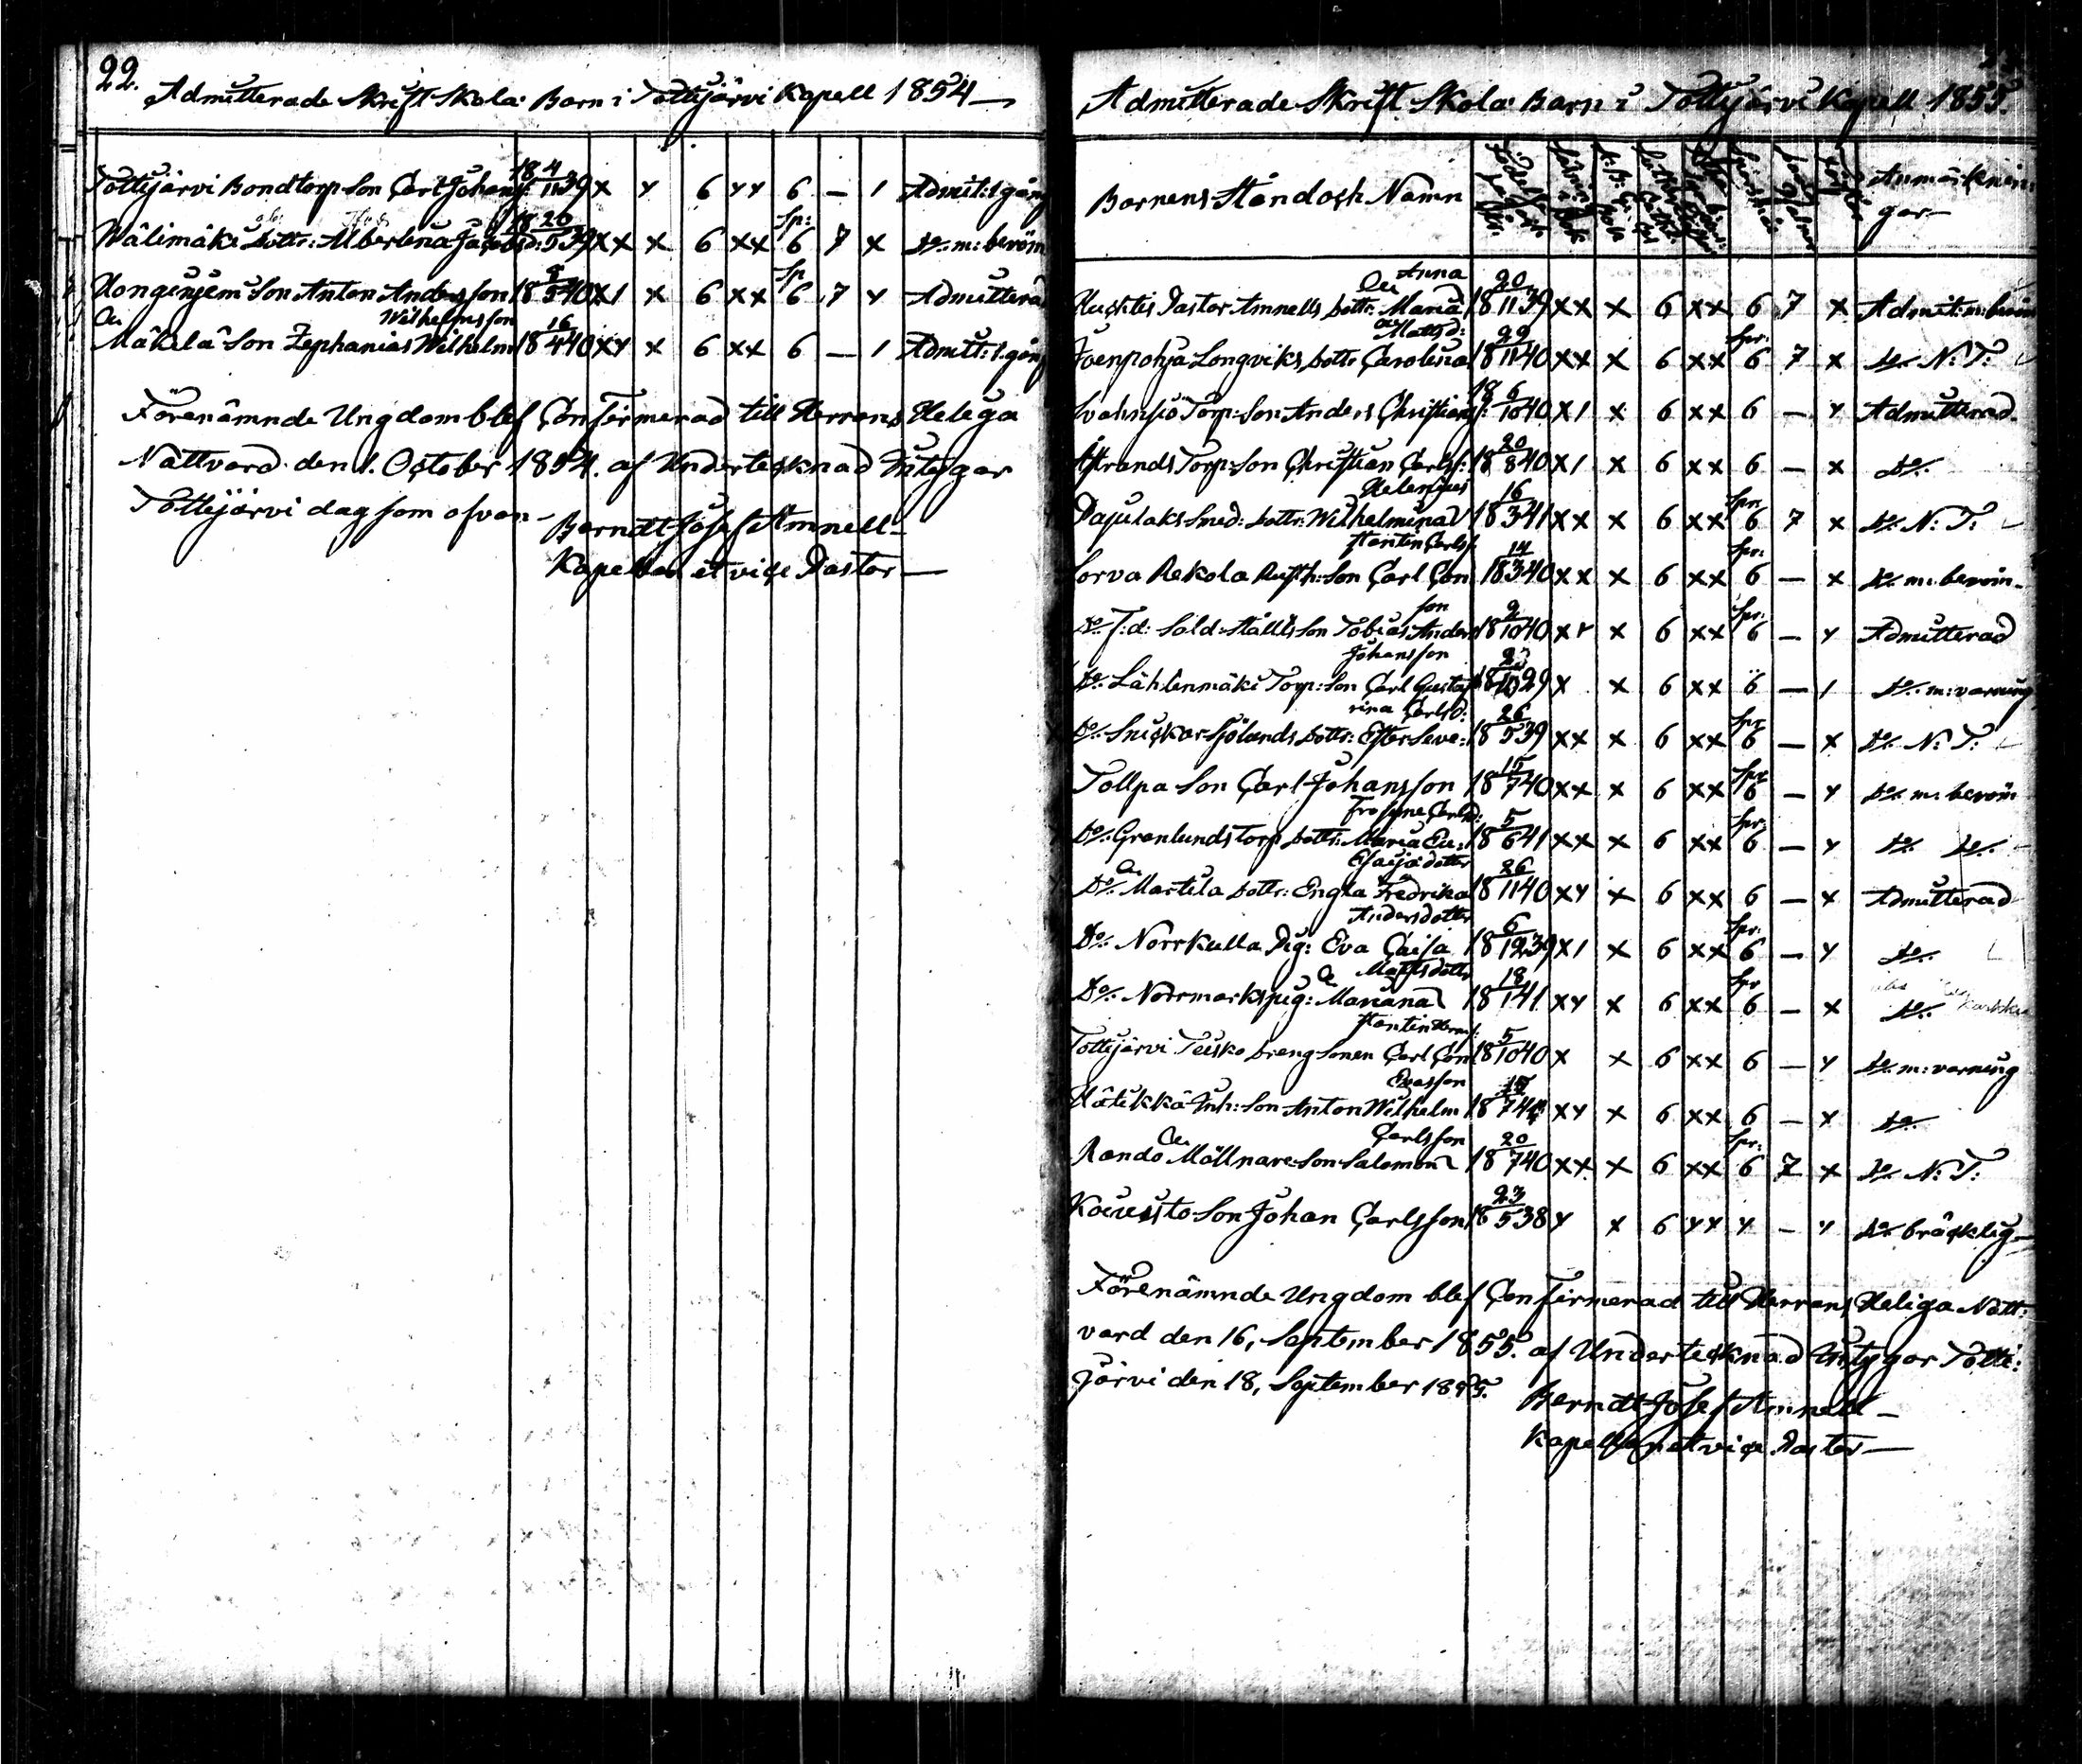 22.
Admitterade Skrift Skola Barn i Tottijärvi Kapell 1854
Tottijärvi Bondtorp Son Carl Johans: 18 4/11 39 x y 6 yy 6 — 1 Admit: 1 gång
Wälimäki Dottr: Albertina Jacobsd: 18 26/5 39 xx x 6 xx Sp: 6 7 x Do. m: beröm
Honginiemi Son Anton Andersson 18 8/5 40 x1 x 6 xx Sp 6 7 y Admitterad
Wilhelmsson
Mäkilä Son Zephanias Wilhelm 18 16/4 40 xy x 6 xx 6 — 1 Admitt: 1. gång
Förenämnde Ungdom blef Confirmerad till Herrans Heliga
Nattvard den 1. October 1854. af Undertecknad Intygar
Tottijärvi dag som ofvan
Berndt Josef Amnell
Kapellan et vice Pastor
Admitterade Skrift Skola Barn i Tottijärvi Kapell 1855.
Barnens Stånd och Namn
Anmärknin:
gar
Anna
Pastor Amnells Dottr: Maria 18 20/11 39 xx x 6 xx 6 7 x Admit: m: beröm
Mattsd:
Joenpohja Longviks Dottr Carolina 18 29/11 40 xx x 6 xx Spr: 6 7 x Do N: T:
Torp: Son Anders Christians: 18 6/10 40 x1 x 6 xx 6 — y Admitterad.
Strands Torp: Son Christian Carlss: 18 20/8 40 x1 x 6 xx 6 — x Do.
Pajulaks Smed: Dottr: Wilhelmina 18 16/3 41 xx x 6 xx Spr: 6 7 x Do. N: T:
stantin Carlss:
Sorva Rekola Rusth: Son Carl Con 18 14/3 40 xx x 6 xx Spr: 6 — x Do m: beröm
son
Do. f: d: Sold: Ståhls Son Tobias Anders 18 9/10 40 xr x 6 xx Spr: 6 — y Admitterad
Johansson
Do. Lähtenmäki Torp: Son Carl Gustaf 18 23/10 29 x x 6 xx 6 — 1 Do. m: varning
rina Carlsd:
Do. Snickar Sjölunds Dottr: Ester Seve: 18 26/5 39 xx x 6 xx Spr 6 — x Do. N: T:
Tollpa Son Carl Johansson 18 15/7 40 xx x 6 xx Spr 6 — y Do. m: beröm
frosyne Carlsd:
Do. Grenlunds Torp Dottr: Maria Eu: 18 5/6 41 xx x 6 xx Spr: 6 — y Do Do.
Esaijädotter
Do. Martila Dottr: Engla Fredrika 18 26/11 40 xy x 6 xx 6 — x Admitterad
Andersdotter
Do. Norrkulla Pig: Eva Caisa 18 6/12 39 x1 x 6 xx Spr: 6 — y Do.
Mattsdotter
Do. Norrmarks pig: Mariana 18 18/1 41 xy x 6 xx Spr 6 — x Do.
stantin Herms:
Tottijärvi Teisko Dreng Sonen Carl Con 18 5/10 40 x x 6 xx 6 — y Do. m: varning
Evasson
Hätikkä Inh: Son Anton Wilhelm 18 15/7 41 xy x 6 xx 6 — x Do.
Carlsson
Rando Möllnare Son Salomon 18 20/7 40 xx x 6 xx Spr: 6 7 x Do N: T:
Koivisto Son Johan Carlsson 18 23/5 38 y x 6 yy y — y Do. bräcklig
Förenämnde Ungdom blef Confirmerad till Herrans Heliga Natt:
vard den 16, September 1855. af Undertecknad Intygar Totti:
järvi den 18, September 1855.
Berndt Josef Amnell
Kapellan et vice Pastor